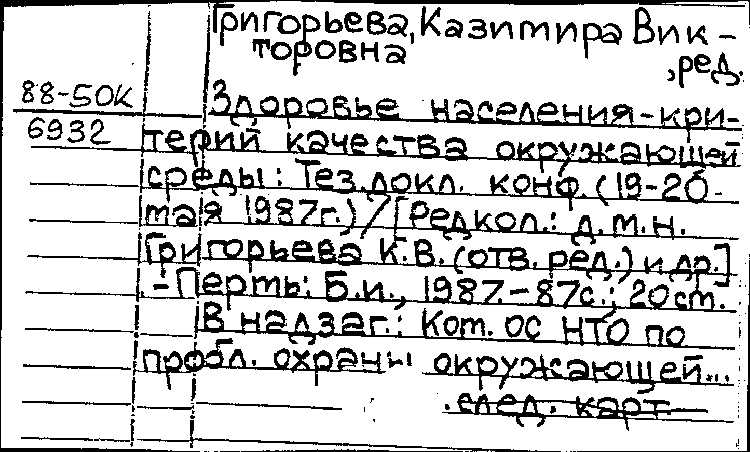 Григорьева, Казимира Вик-
торовна
, ред.
88-50К
6932
Здоровье населения-кри-
терий качества окружающей
среды: Тез. докл. конф. (19-20
мая 1987г.)/[Редкол.: д.м.н.
Григорьева К.В. (отв. ред.) и др.]
.-Пермь: Б.и., 1987.-87с.; 20 ст.
В надзаг.: Ком. ОС НТО по
пробл. охраны окружающей...
.след. карт